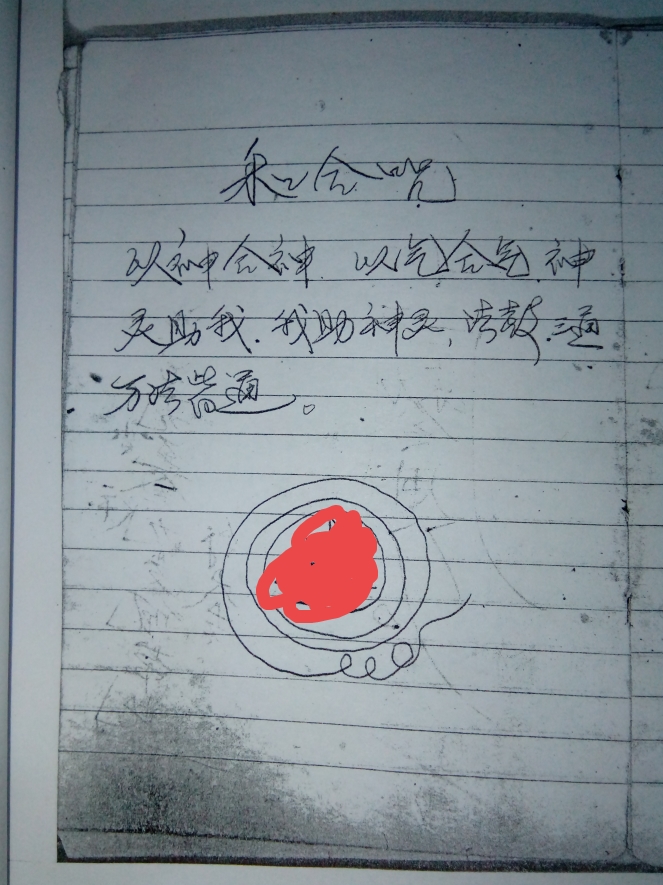 和合咒
以神合神 以气合气 神
灵助我.我助神灵,法鼓三通
万法皆通。